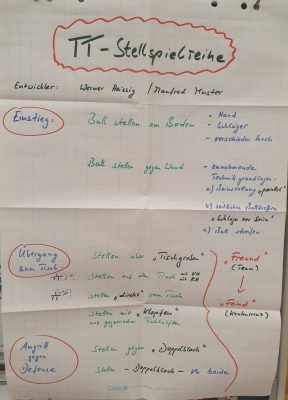 TT - Stellspielreihe
Entwickler: Werner Heissig / Manfred Muster
Einstieg:
Ball stellen am Boden
- Hand
- Schläger
- verschieden hoch
Ball stellen gegen Wand
- zunehmende
Technikgrundlagen:
a) Beinstellung „parallel“
b) seitlicher Balltreffen
„Schläger vor Stirn“
c) Ball streifen
Übergang
zum Tisch
Stellen über „Tischgraben“
Stellen auf den Tisch mit VH
mit RH
Stellen „direkt“ vom Tisch
Stellen mit „Klopfen“
auf gegnerischer Tischhälfte
„Freund“
(Team)
„Feind“
(Konkurrenz)
Angriff
gegen
Defense
Stellen gegen „Doppelstock“
Stellen - Doppelstock - VH beide